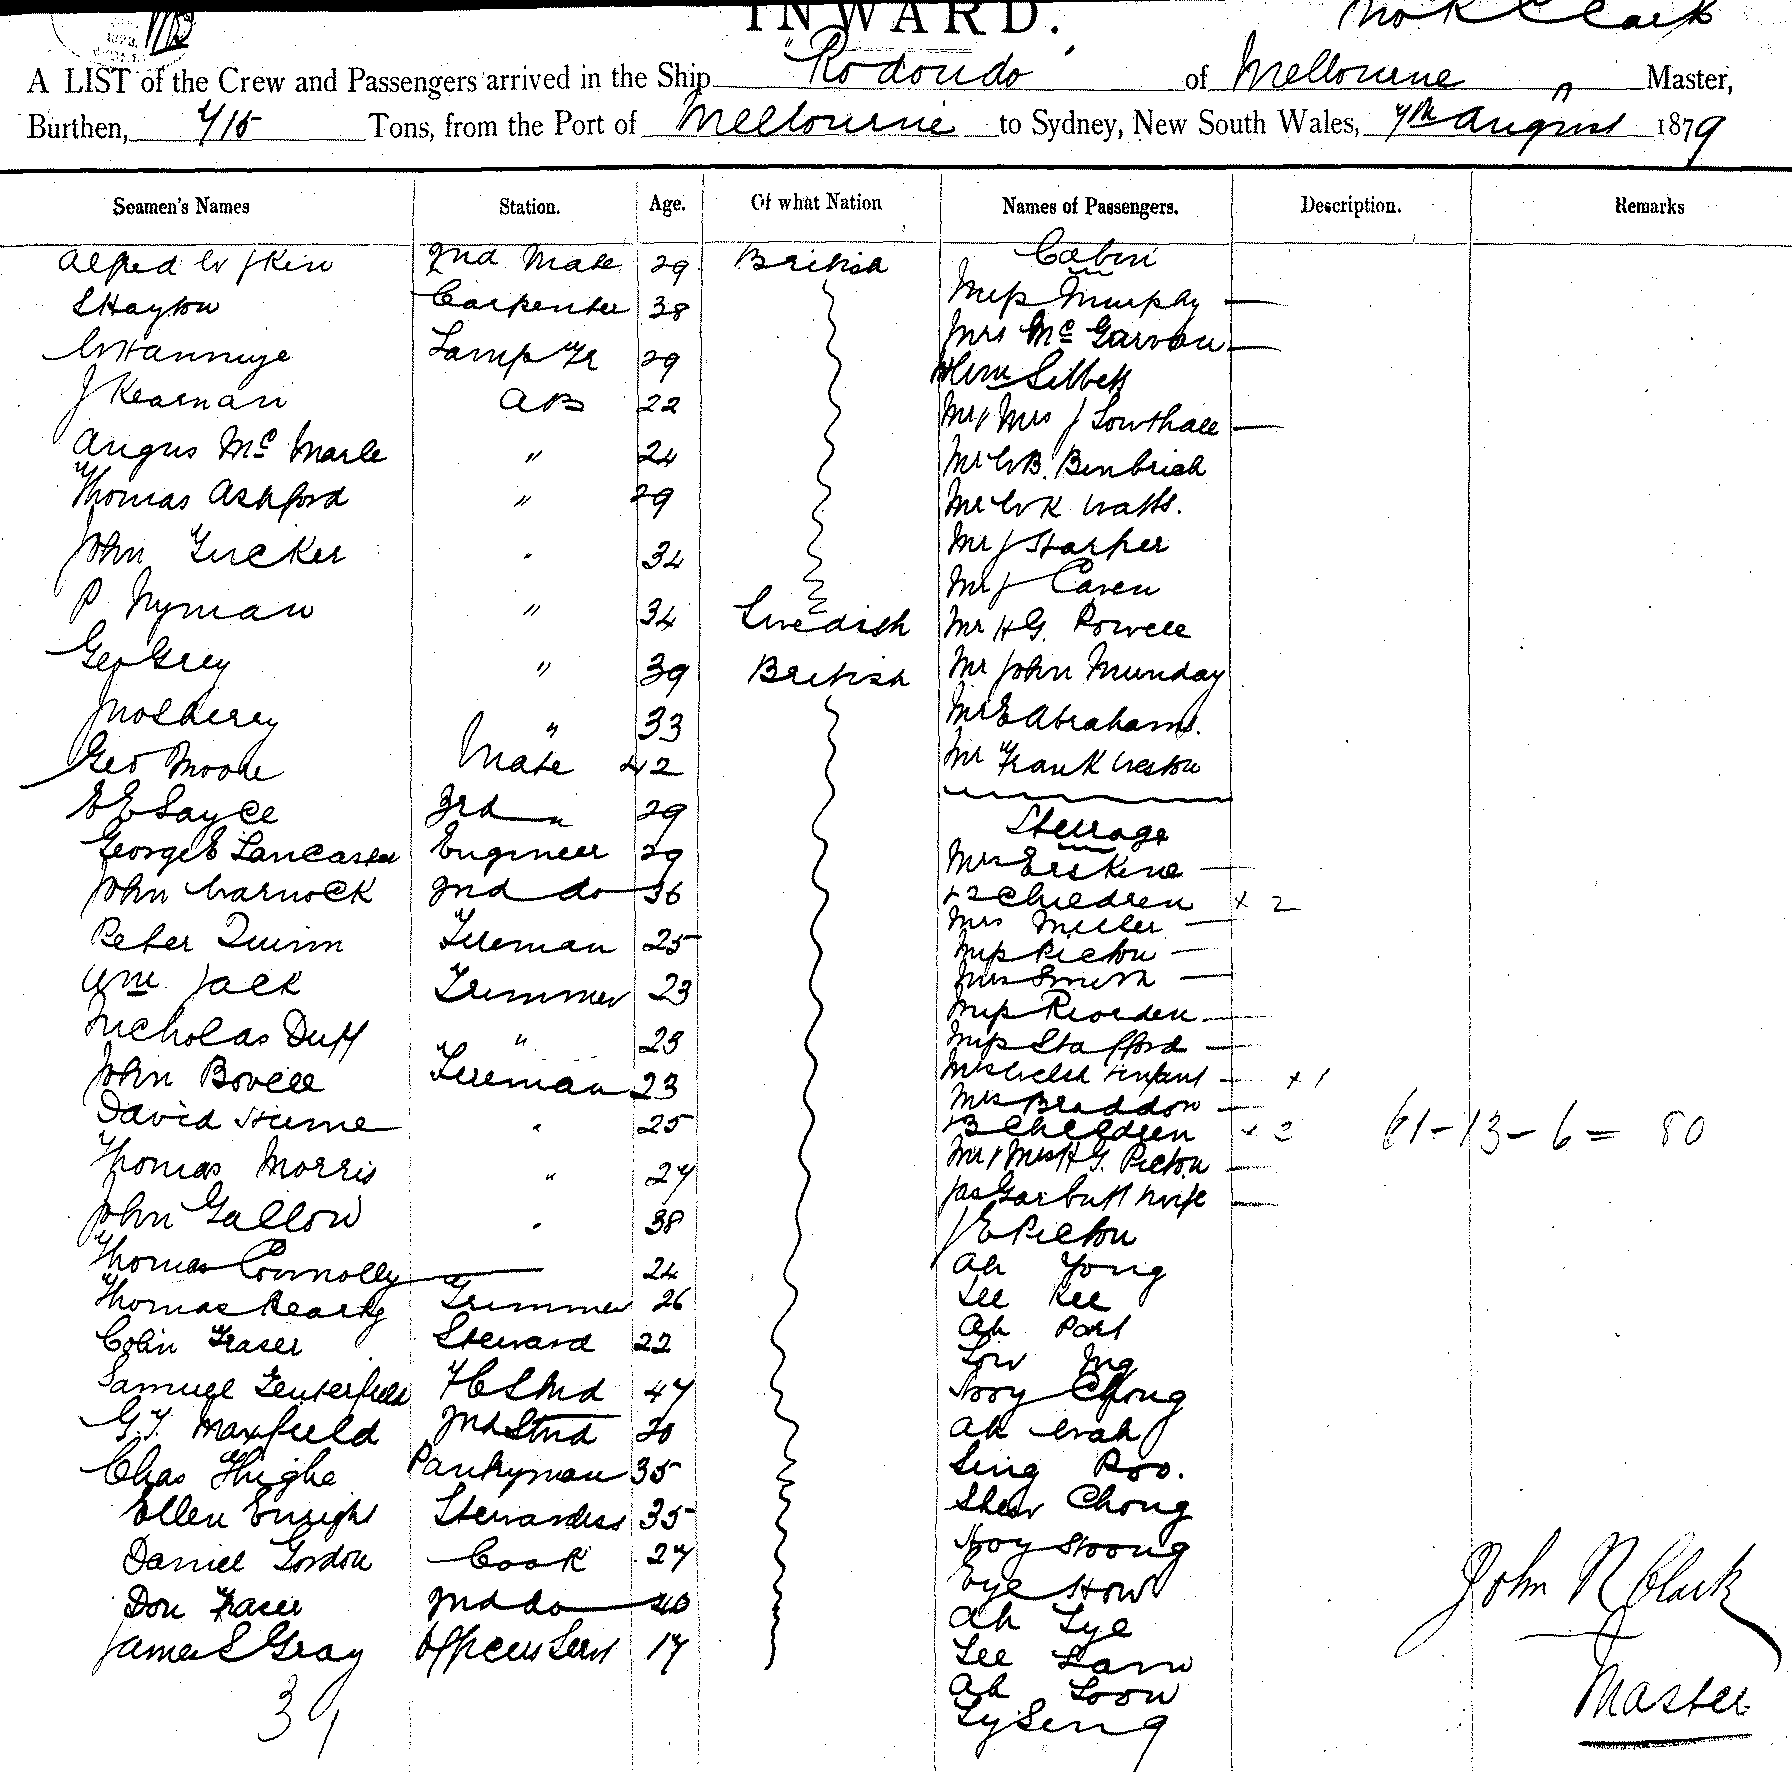 INWARD.
Clark
A LIST of the Crew and Passengers arrived in the Ship "Rodondo" of Melbourne Master,
Burthen, 715 Tons, from the Port of Melbourne to Sydney, New South Wales, 7th August 1879
Seamen's Names Station. Age. Of what Nation Names of Passengers. Description. Remarks
Alfred 2nd Mate 29 British Cabin
S Hayton Carpenter 38 Miss Murphy
Lamp Tr 29 Mrs McGarvan
J Kearnan AB 22
Angus Mc " 24 Mr & Mrs J Southall
Thomas Ashford " 29 Mr W B.
John Tucker " 34 Mr W K Watts.
P Nyman " 34 Swedish Mr J Harper
Geo Grey " 39 British Mr J Caven
" 33 Mr H G. Powell
Geo Moore Mate 42 Mr John Munday
E E Sayce 3rd " 29 Mr E Abrahams.
George E Lancaster Engineer 29 Mr Frank Weston
John Warnock 2nd do 36 Steerage
Peter Quinn Fireman 25 Mrs Erskine
Wm Jack Trimmer 23 + 2 Children x 2
Nicholas Duff " 23 Mrs Miller
John Bovell Fireman 23 Miss Picton
David Hume " 25 Mrs Smith
Thomas Morris " 27 Miss Riorden
John Gallow " 38 Miss Stafford
Thomas Connolly 24 Mrs Welsh & infant x 1
Thomas Trimmer 26 Mrs Braddon
Colin Fraser Steward 22 + 3 Children x 3 61-13-6= 80
Samuel Tenterfield 47 Mr & Mrs H G. Picton
G. T. Maxfield 2nd Stwd 20 Jas Garbutt & wife
Chas Pantryman 35 J E Picton
Ellen Enright Stewardess 35 Ah Yong
Daniel Gordon Cook 27 Lee Kee
Don Fraser 2nd do 40 Ah
James S Gray Officers Servt 17 Low Ing
Chong
Ah Wah
Sing Poo.
Shew Chong
Hoong
Eye How
Ah Lye
Lee Lam
Ah Loon
Ly Seng
John N Clark
Master